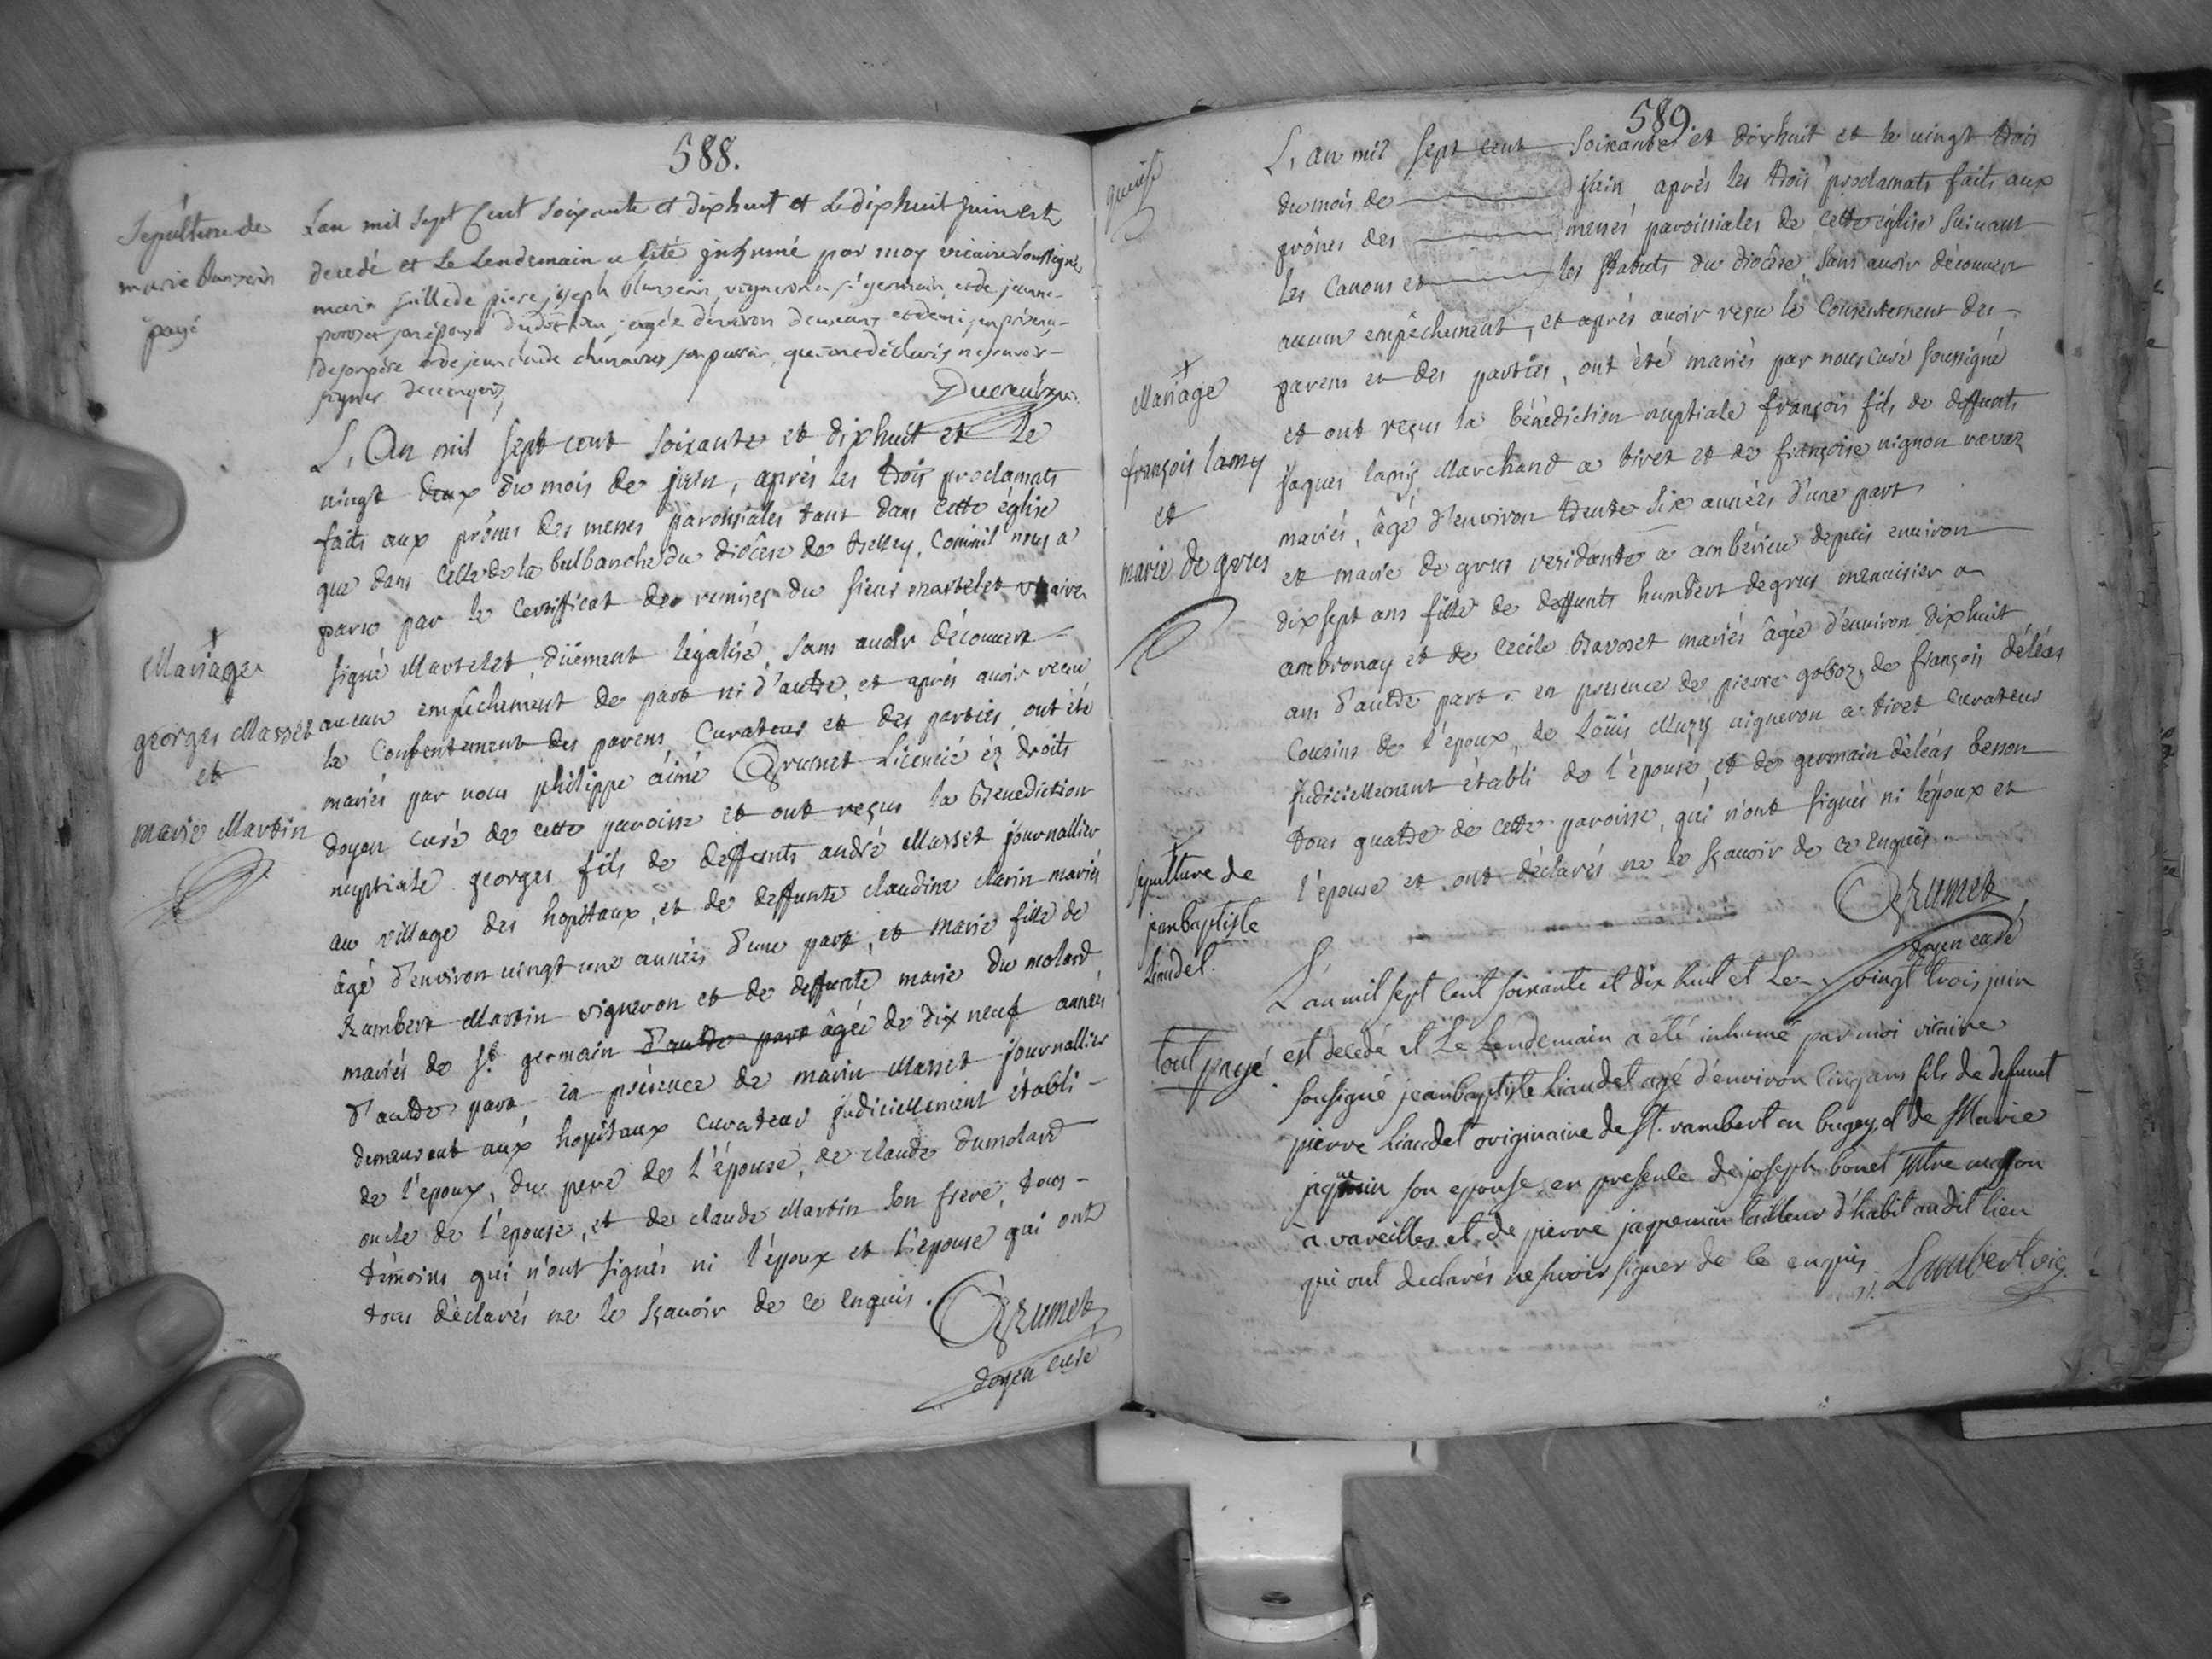 588.
Sepulture de
marie
payé
Lan mil sept Cent Soixante et dix huit et le dixhuit juin est
decedé et le Lendemain a êté jnhumé par moy vicaire soussigné
marie fille de piere joseph vigneron a st germain, et de jeanne
son épouse dudit lieu, agée denviron deux ans et demi, en présence
de son père et de jean claude chenavas son parrain, qui ont déclarés ne scavoir
signer de ce enquis,
L'An mil sept cent soixante et dixhuit et le
vingt deux du mois de juin, aprés les trois proclamats
faits aux prônes des messes paroissiales tant dans cette église
que dans celle de la balbanche du diocèse de Belley, comm'il nous a
paru par le certifficat de remises du sieur martelet vicaire
signé Martelet düement légalisé, sans avoir découvert
Mariage
georges Masset
et
marie Martin
aucun empêchement de part ni d'autre, et aprés avoir recu
le Consentement des parens Curateur et des parties, ont été
mariés par nous philippe aimé Grumet Licencié éz droits
doyen curé de cette paroisse et ont reçus la Benediction
nuptiale georges fils de deffunts andré Masset journallier
au village des hopitaux, et de deffunte claudine Marin mariés
âgé d'environ vingt une années d'une part, et marie fille de
Rambert Martin vigneron et de deffunte marie du molard
mariés de st. germain d'autre part âgée de dix neuf années
d'autre part, en présence de marin Masset journallier
demeurant aux hopitaux curateur judiciellement établi
de l'époux, du pere de l'épouse, de claude dumolard
oncle de l'épouse, et de claude Martin son frere, tous
témoins qui n'ont signés ni l'époux et l'épouse qui ont
tous déclarés ne le sçavoir de ce enquis.
Grumet
doyen curé
589.
L'an mil sept cent soixante et dixhuit et le vingt trois
du mois de juin aprés les trois proclamats faits aux
prônes des messes paroissiales de cette église suivant
les Canons et les statuts du diocèse, sans avoir découvert
aucun empêchement, et aprés avoir reçu le Consentement des
Mariage
françois lamy
et
marie de grus
parens et des parties, ont été mariés par nous curé soussigné
et ont reçus la bénédiction nuptiale françois fils de deffunts
jaques lamy Marchand a tiret et de françoise vignon
mariés, âgé d'environ trente six années d'une part
et marie de grus residante a ambérieu depuis environ
dix sept ans fille de deffunts humbert degrus menuisier a
ambronay et de cecile Bavoset mariés âgée d'environ dixhuit
ans d'autre part. en presence de pierre goboz, de françois déléas
Cousins de l'époux, de loüis Muzy vigneron a tiret curateur
judiciellement établi de l'épouse, et de germain déléas besson
tous quatre de cette paroisse, qui n'ont signés ni l'époux et
l'épouse et ont déclarés ne le sçavoir de ce enquis
Grumet
doyen curé
Sepulture de
jeanbaptiste
Liaudet.
tout payé.
L'an mil sept cent soixante et dix huit et Le vingt trois juin
est decedé et Le Lendemain a été inhumé par moi vicaire
sousigné jeanbaptiste Liaudet agé d'environ cinq ans fils de defunt
pierre Liaudet originaire de st. rambert en bugey, et de Marie
jaquemin son epouse, en presence de joseph bonet maitre masson
à vareilles et de pierre jaquemin tailleur d'habit audit lieu
qui ont declarés ne savoir signer de ce enquis. Lambert vic.